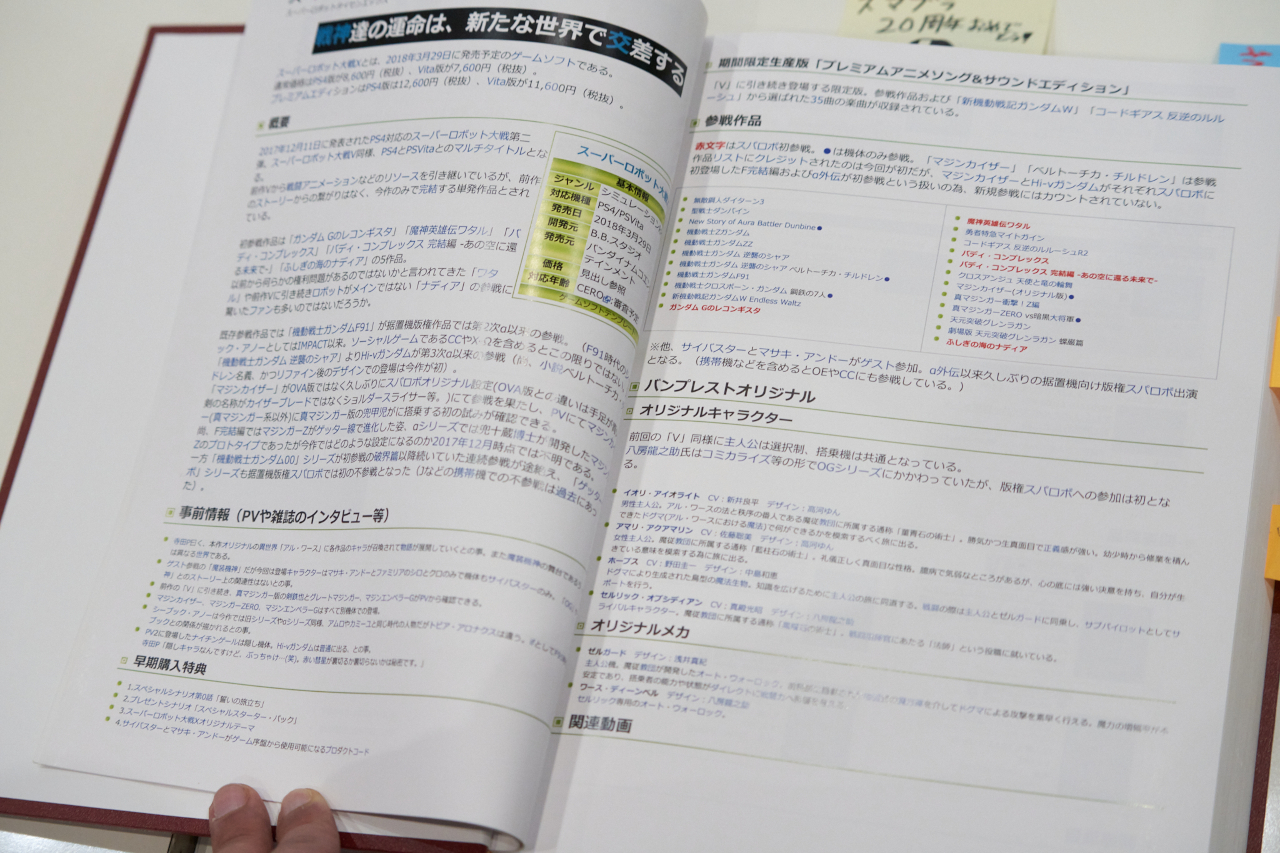 スーパーロボットタイセンエックス
戦神達の運命は、新たな世界で交差する
スーパーロボット大戦Xとは、2018年3月29日に発売予定のゲームソフトである。
通常価格はPS4版が8,600円（税抜）、Vita版が7,600円（税抜）。
プレミアムエディションはPS4版は12,600円（税抜）、Vita版が11,600円（税抜）。
概要
2017年12月11日に発表されたPS4対応のスーパーロボット大戦第二
後、スーパーロボット大戦V同様、PS4とPSVitaとのマルチタイトルとな
前作Vから戦闘アニメーションなどのリソースを引き継いでいるが、前作
のストーリーからの繋がりはなく、今作のみで完結する単発作品とされ
ている。
初参戦作品は「ガンダム Gのレコンギスタ」「魔神英雄伝ワタル」「バ
ディ・コンプレックス」「バディ・コンプレックス 完結編 -あの空に還
る未来で-」「ふしぎの海のナディア」の5作品。
以前から何らかの権利問題があるのではないかと言われてきた「ワタ
ル」や前作Vに引き続きロボットがメインではない「ナディア」の参戦に
驚いたファンも多いのではないだろうか。
スーパーロボット大
基本情報
ジャンル シミュレーション
対応機種 PS4/PSVita
発売日 2018年3月29日
開発元 B.B.スタジオ
発売元 バンダイナムコエン
ティンメント
価格 見出し参照
対応年齢 CERO:審査予定
ゲームソフトテンプレ
既存参戦作品では「機動戦士ガンダムF91」が据置機版権作品では第2次α以来の参戦。（F91時代の
ック・アノーとしてはIMPACT以来。ソーシャルゲームであるCCやX-Ωを含めるとこの限りではない
「機動戦士ガンダム 逆襲のシャア」よりHi-νガンダムが第3次α以来の参戦（尚、小説ベルトーチカ・
ドレン名義、かつリファイン後のデザインでの登場は今作が初）。
「マジンカイザー」がOVA版ではなく久しぶりにスパロボオリジナル設定(OVA版との違いは手足が
剣の名称がカイザーブレードではなくショルダースライサー等。)にて参戦を果たし、PVにてマジン
ー(真マジンガー系以外)に真マジンガー版の兜甲児がに搭乗する初の試みが確認できる。
尚、F完結編ではマジンガーZがゲッター線で進化した姿、αシリーズでは兜十蔵博士が開発したマジン
Zのプロトタイプであったが今作ではどのような設定になるのか2017年12月時点では不明である。
一方「機動戦士ガンダム00」シリーズが初参戦の破界篇以降続いていた連続参戦が途絶え、「ゲッター
ボ」シリーズも据置機版権スパロボでは初の不参戦となった（Jなどの携帯機での不参戦は過去にあっ
た）。
事前情報（PVや雑誌のインタビュー等）
寺田P曰く、本作オリジナルの異世界「アル・ワース」に各作品のキャラが召喚されて物語が展開していくとの事。また魔装機神の舞台である
は異なる世界である。
ゲスト参戦の「魔装機神」だが今回は登場キャラクターはマサキ・アンドーとファミリアのシロとクロのみで機体もサイバスターのみ。
とのストーリー上の関連性はないとの事。
前作の「V」に引き続き、真マジンガー版の剣鉄也とグレートマジンガー、マジンエンペラーGがPVから確認できる。
マジンカイザー、マジンガーZERO、マジンエンペラーGはすべて別機体での登場。
シーブック・アノーは今作では旧シリーズやαシリーズ同様、アムロやカミーユと同じ時代の人物だがトビア・アロナクスは違う。
ブックとの関係が描かれるとの事。
PV2に登場したナイチンゲールは隠し機体。Hi-νガンダムは普通に出る、との事。
寺田P「隠しキャラなんですけど、ぶっちゃけ…(笑)。赤い彗星が裏切るか裏切らないかは秘密です。」
早期購入特典
1.スペシャルシナリオ第0話「誓いの旅立ち」
2.プレゼントシナリオ「スペシャルスターター・パック」
3.スーパーロボット大戦Xオリジナルテーマ
4.サイバスターとマサキ・アンドーがゲーム序盤から使用可能になるプロダクトコード
スマブラ
20周年おめでとう
期間限定生産版「プレミアムアニメソング&サウンドエディション」
「V」に引き続き登場する限定版。参戦作品および「新機動戦記ガンダムW」「コードギアス 反逆のルル
ーシュ」から選ばれた35曲の楽曲が収録されている。
参戦作品
赤文字はスパロボ初参戦。●は機体のみ参戦。「マジンカイザー」「ベルトーチカ・チルドレン」は参戦
作品リストにクレジットされたのは今回が初だが、マジンカイザーとHi-νガンダムがそれぞれスパロボに
初登場したF完結編およびα外伝が初参戦という扱いの為、新規参戦にはカウントされていない。
無敵鋼人ダイターン3
聖戦士ダンバイン
New Story of Aura Battler Dunbine●
機動戦士Zガンダム
機動戦士ガンダムZZ
機動戦士ガンダム 逆襲のシャア
機動戦士ガンダム 逆襲のシャア ベルトーチカ・チルドレン●
機動戦士ガンダムF91
機動戦士クロスボーン・ガンダム 鋼鉄の7人●
新機動戦記ガンダムW Endless Waltz
ガンダム Gのレコンギスタ
魔神英雄伝ワタル
勇者特急マイトガイン
コードギアス 反逆のルルーシュR2
バディ・コンプレックス
バディ・コンプレックス 完結編 -あの空に還る未来で-
クロスアンジュ 天使と竜の輪舞
マジンカイザー(オリジナル版)●
真マジンガー衝撃！Z編
真マジンガーZERO vs暗黒大将軍●
天元突破グレンラガン
劇場版 天元突破グレンラガン 螺巌篇
ふしぎの海のナディア
※他、サイバスターとマサキ・アンドーがゲスト参加。α外伝以来久しぶりの据置機向け版権スパロボ出演
となる。（携帯機などを含めるとOEやCCにも参戦している。）
バンプレストオリジナル
オリジナルキャラクター
前回の「V」同様に主人公は選択制、搭乗機は共通となっている。
八房龍之助氏はコミカライズ等の形でOGシリーズにかかわっていたが、版権スパロボへの参加は初とな
る。
イオリ・アイオライト　CV：新井良平　デザイン：高河ゆん
男性主人公。アル・ワースの法と秩序の番人である魔従教団に所属する通称「菫青石の術士」。勝気かつ生真面目で正義感が強い。幼少時から修業を積ん
できたドグマ(アル・ワースにおける魔法)で何ができるかを模索するべく旅に出る。
アマリ・アクアマリン　CV：佐藤聡美　デザイン：高河ゆん
女性主人公。魔従教団に所属する通称「藍柱石の術士」。礼儀正しく真面目な性格。臆病で気弱なところがあるが、心の底には強い決意を持ち、自分が生
きている意味を模索する為に旅に出る。
ホープス　CV：野田圭一　デザイン：中島和恵
ドグマにより生成された鳥型の魔法生物。知識を広げるために主人公の旅に同道する。戦闘の際は主人公とゼルガードに同乗し、サブパイロットとしてサ
ポートを行う。
セルリック・オブシディアン　CV：真殿光昭　デザイン：八房龍之助
ライバルキャラクター。魔従教団に所属する通称「黒曜石の術士」。戦闘指揮官にあたる「法師」という役職に就いている。
オリジナルメカ
ゼルガード　デザイン：浅井真紀
主人公機。魔従教団が開発したオート・ウォーロック。
安定であり、搭乗者の能力や状態がダイレクトに
ワース・ディーンベル　デザイン：八房龍之助
セルリック専用のオート・ウォーロック。
関連動画